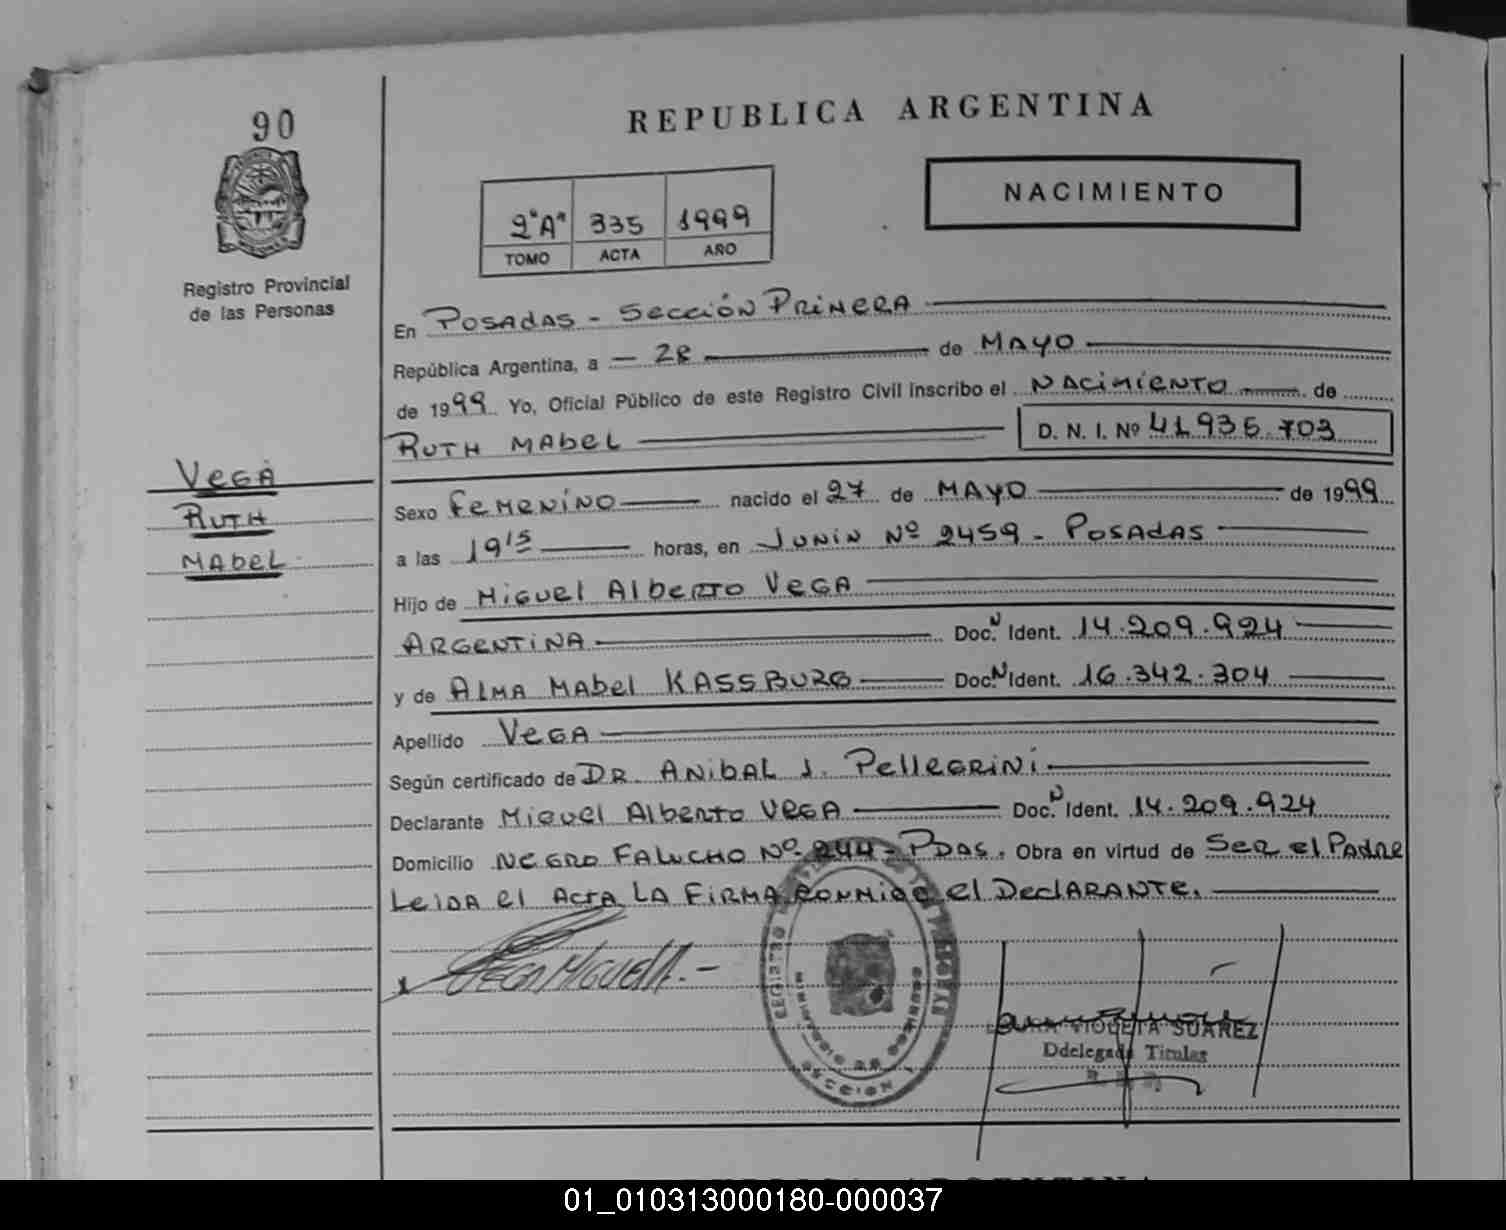 90
REPUBLICA ARGENTINA
NACIMIENTO
2ºAª 335 1999
TOMO ACTA AÑO
Registro Provincial
de las Personas
En POSADAS - SECCIÓN PRIMERA
República Argentina, a - 28 de MAYO
de 1999 Yo, Oficial Público de este Registro Civil inscribo el NACIMIENTO de
RUTH MABEL D. N. I. Nº 41.935.703
VEGA
RUTH
MABEL
Sexo FEMENINO nacido el 27 de MAYO de 1999
a las 19 15 horas, en JUNIN Nº 2459 - POSADAS
Hijo de MIGUEL ALBERTO VEGA
ARGENTINA Doc. N Ident. 14.209.924
y de ALMA MABEL KASSBURG Doc. N Ident. 16.342.304
Apellido VEGA
Según certificado de DR. ANIBAL J. PELLEGRINI
Declarante MIGUEL ALBERTO VEGA Doc. N Ident. 14.209.924
Domicilio NEGRO FALUCHO Nº 244 - PDAS. Obra en virtud de SER EL PADRE
LEIDA EL ACTA LA FIRMA CONMIGO EL DECLARANTE.
VEGA MIGUEL A. -
REGISTRO DE LAS PERSONAS
MINISTERIO DE GOBIERNO
SECCION
VIOLETA SUAREZ
Ddelegada Titular
REPUBLICA ARGENTINA
01_010313000180-000037